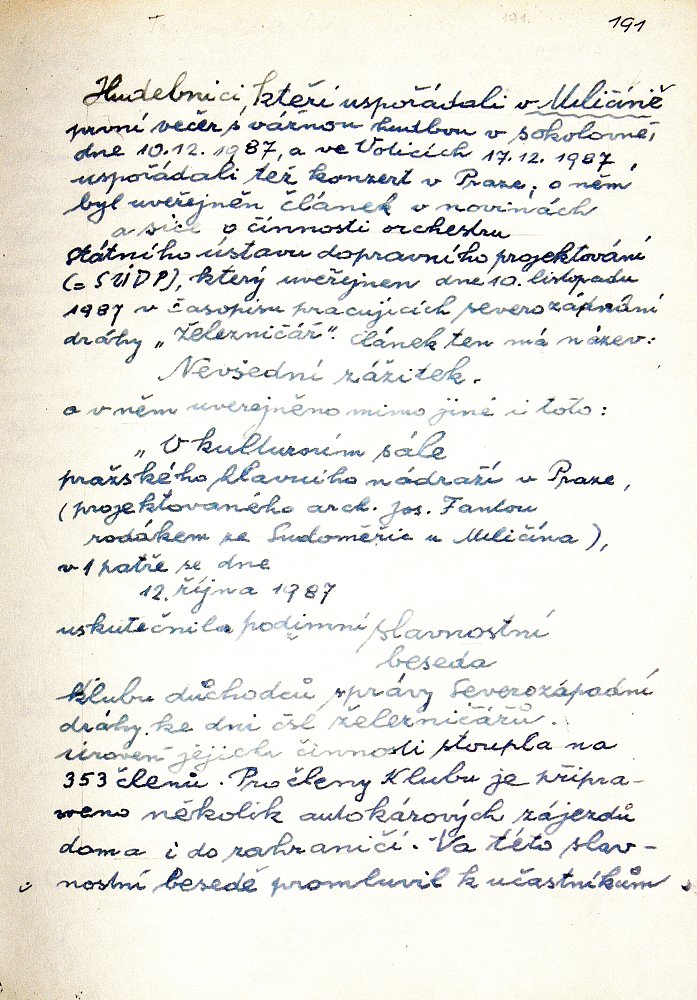 191
Hudebníci, kteří uspořádali v Miličíně
první večer s vážnou hudbou v sokolovně,
dne 10.12.1987, a ve Voticích 17.12.1987,
uspořádali též konzert v Praze; o něm
byl uveřejněn článek v novinách
a sice o činnosti orchestru
Státního ústavu dopravního projektování
(= SÚDP), který uveřejnen dne 10. listopadu
1987 v časopisu pracujících severozápadní
dráhy „Železničář". Článek ten má název:
Nevšední zážitek.
a v něm uverejněno mimo jiné i toto:
„V kulturním sále
pražského hlavního nádraží v Praze,
(projektovaného arch. Jos. Fantou
rodákem ze Sudoměřic u Miličína),
v 1 patře se dne
12. října 1987
uskutečnila podzimní slavnostní
beseda
Klubu důchodců správy Severozápadní
dráhy ke dni čsl železničářů.
úroveň jejich činnosti stoupla na
353 členů. Pro členy Klubu je připra-
veno několik autokárových zájezdů
doma i do zahraničí. - Na této slav-
nostní besedě promluvil k účastníkům